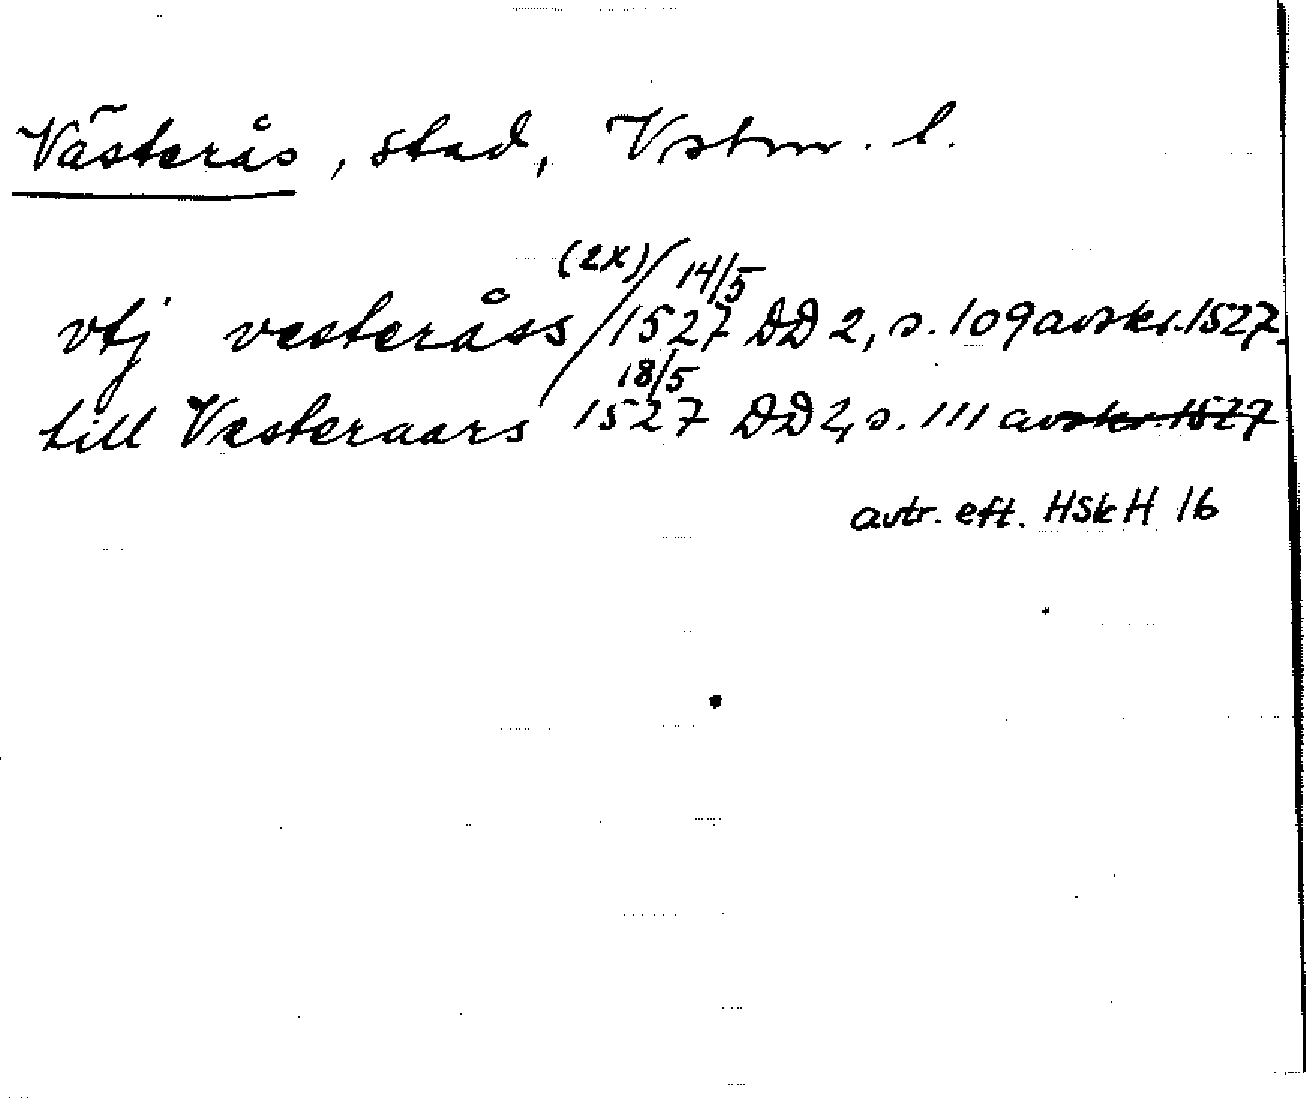 Västerås, stad, Vstm. l.
(2x) 14/5
vtj vesteråss 1527 DD 2, s. 109 avskr. 1527.
18/5
till Vesteraars 1527 DD 2, s. 111 avskr. 1527
avtr. eft. HSkH 16